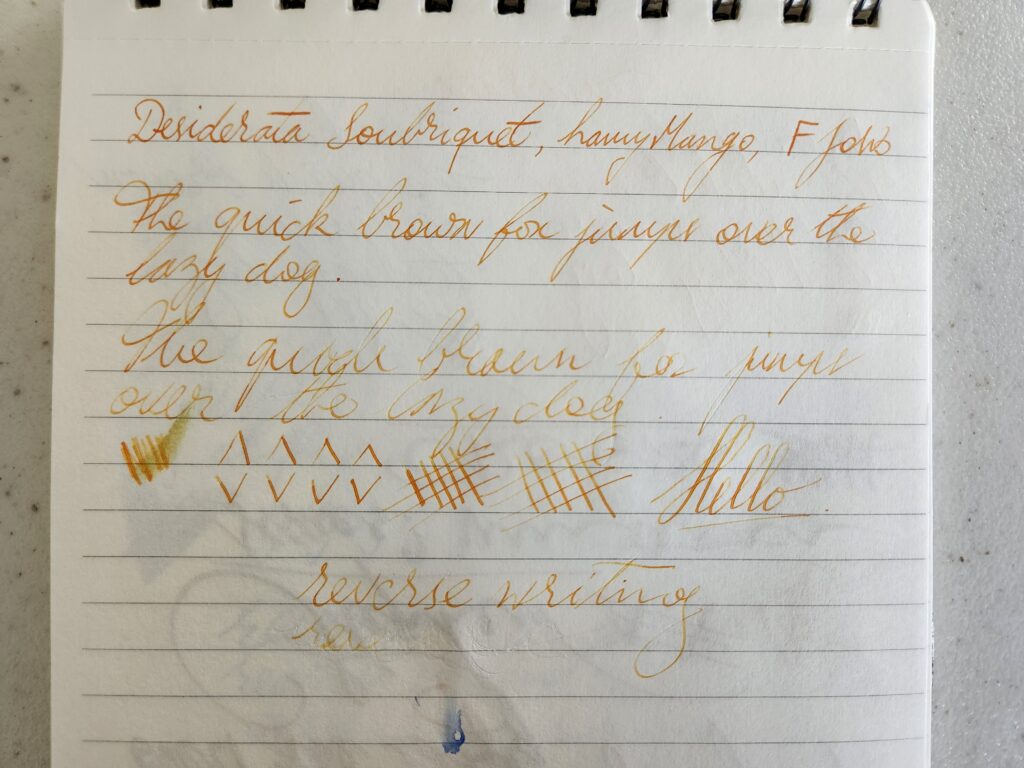 Desiderata Soubriquet, Lamy Mango, F JoWo
The quick brown fox jumps over the
lazy dog.
The quick brown fox jumps
over the lazy dog.
Hello
reverse writing
rev